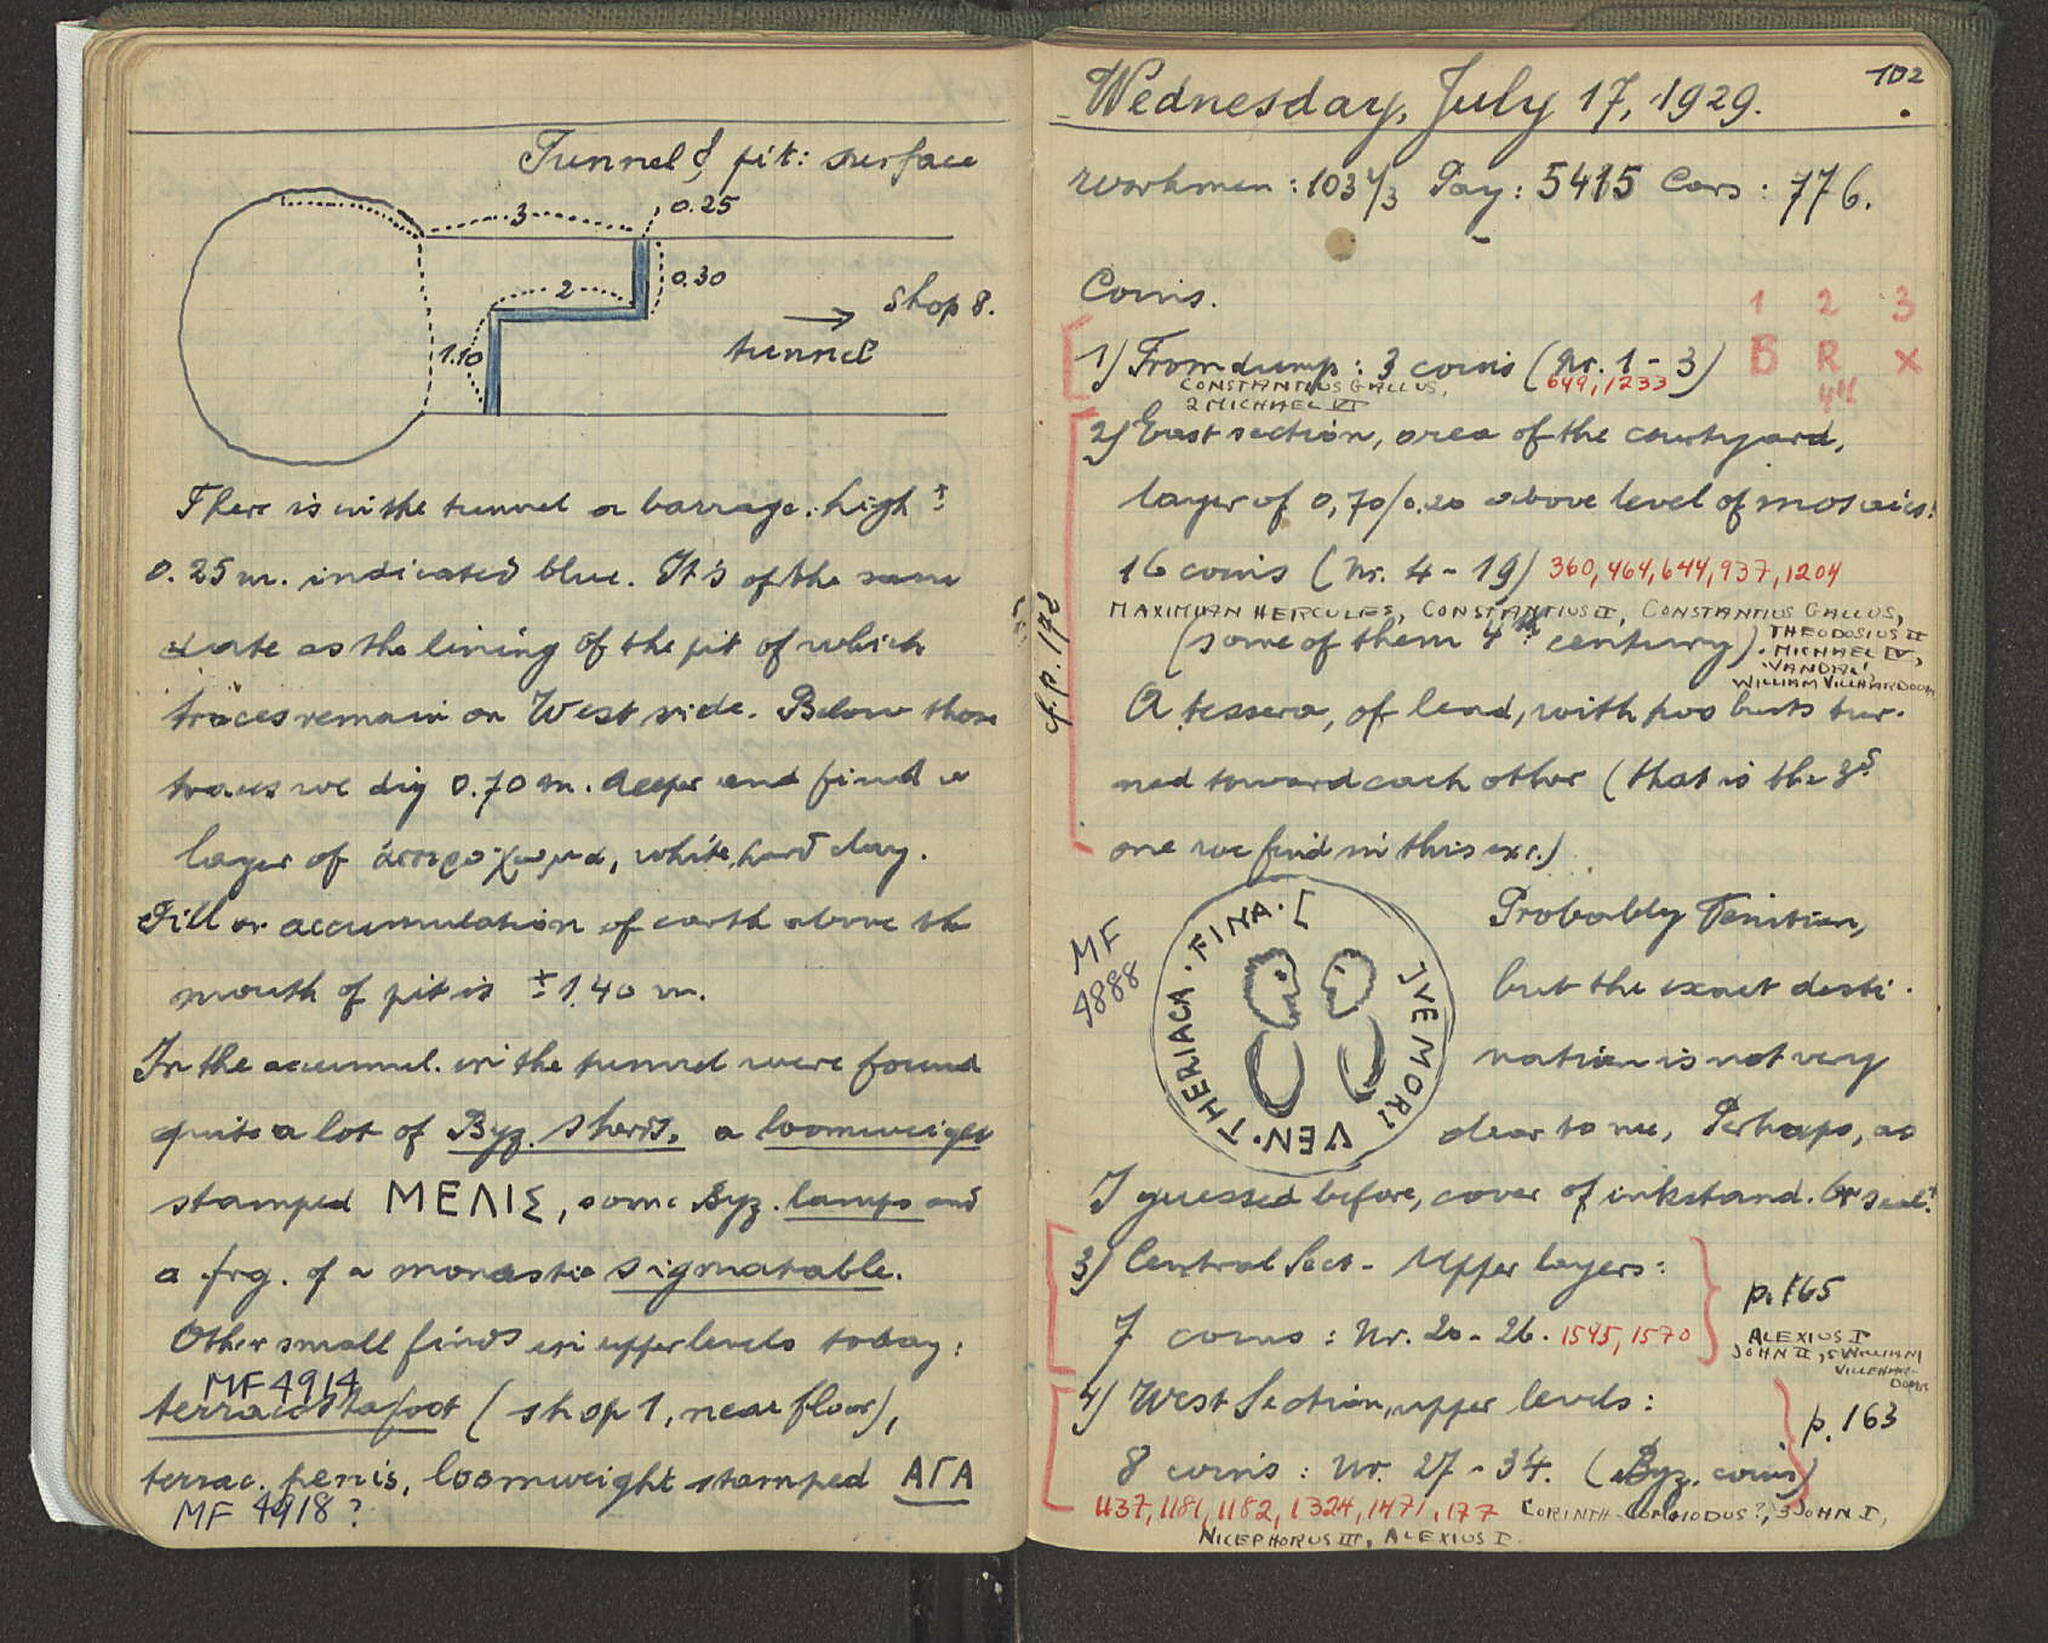 Tunnel & pit: surface
3
0.25
0.30
2
1.10
shop 8.
tunnel
There is in the tunnel a barrage. high ±
0.25 m. indicated blue. It's of the same
date as the lining of the pit of which
traces remain on West side. Below those
traces we dig 0.70 m. deeper and find a
layer of ἀσπρόχωμα, white, hard clay.
Fill or accumulation of earth above the
mouth of pit is ± 1.40 m.
In the accumul. in the tunnel were found
quite a lot of Byz. sherds, a loomweight
stamped ΜΕΛΙΣ, some Byz. lamps and
a frg. of a monastic sigmatable.
Other small finds in upper levels today:
MF 4914
terracotta foot (shop 1, near floor),
terrac. penis, loomweight stamped ΑΓΑ
MF 4918 ?
102
Wednesday, July 17, 1929.
Workmen: 103 1/3 Pay: 5415 Cars: 776.
Coins.
1 2 3
1) From dump: 3 coins (Nr. 1-3) B R X
649, 1233
CONSTANTIUS GALLUS,
2 MICHAEL VI
2) East section, area of the courtyard,
layer of 0,70/0.20 above level of mosaics:
16 coins (Nr. 4-19) 360, 464, 644, 937, 1204
MAXIMIAN HERCULES, CONSTANTIUS II, CONSTANTIUS GALLUS,
THEODOSIUS II
(some of them 4th century). MICHAEL IV,
'VANDAL'
WILLIAM VILLEHARDOUIN
cf. p. 172
A tessera, of lead, with two busts tur-
ned toward each other (that is the 3d
one we find in this exc.)
MF
4888
VEN. THERIACA. FINA. [
]VEMORI
Probably Venitian,
but the exact desti-
nation is not very
clear to me, Perhaps, as
I guessed before, cover of inkstand. Or seal?
3) Central Sect- Upper layers:
7 coins: Nr. 20-26. 1545, 1570
p. 165
ALEXIUS I
JOHN II, 5 WILLIAM
VILLEHAR-
DOUIN
4) West Section, upper levels:
8 coins: Nr. 27-34. (Byz. coins)
p. 163
1137, 1181, 1182, 1324, 1471, 177 CORINTH-COMMODUS?, 3 JOHN I,
NICEPHORUS III, ALEXIUS I